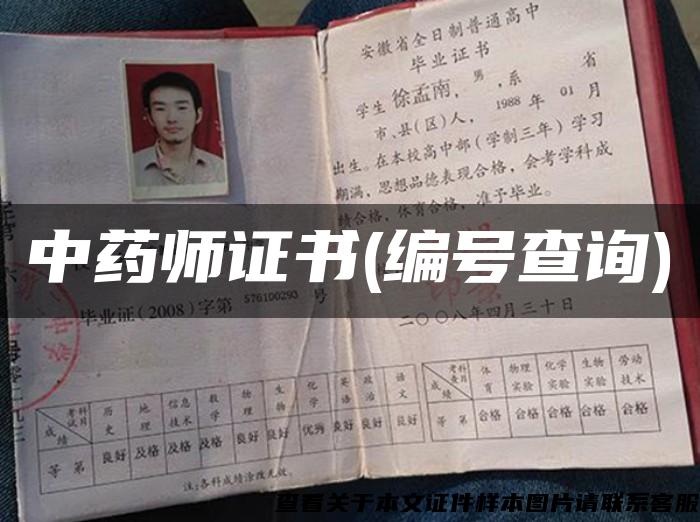 安徽省全日制普通高中
毕业证书
学生 徐孟南，男，系 省
市、县(区)人，1988年01月
出生。在本校高中部（学制三年）学习
期满，思想品德表现合格，会考学科成
绩合格，体育合格，准予毕业。
中药师证书(编号查询)
毕业证(2008)字第 576100293 号
二〇〇八年四月三十日
成绩 考试科目 历史 地理 信息技术 数学 物理 生物 化学 英语 政治 语文
等第 良好 及格 及格 及格 良好 良好 优秀 良好 良好 良好
注:各科成绩涂改无效。
成绩 考查科目 体育 物理实验 化学实验 生物实验 劳动技术
等第 合格 合格 合格 合格 合格
查看关于本文证件样本图片请联系客服